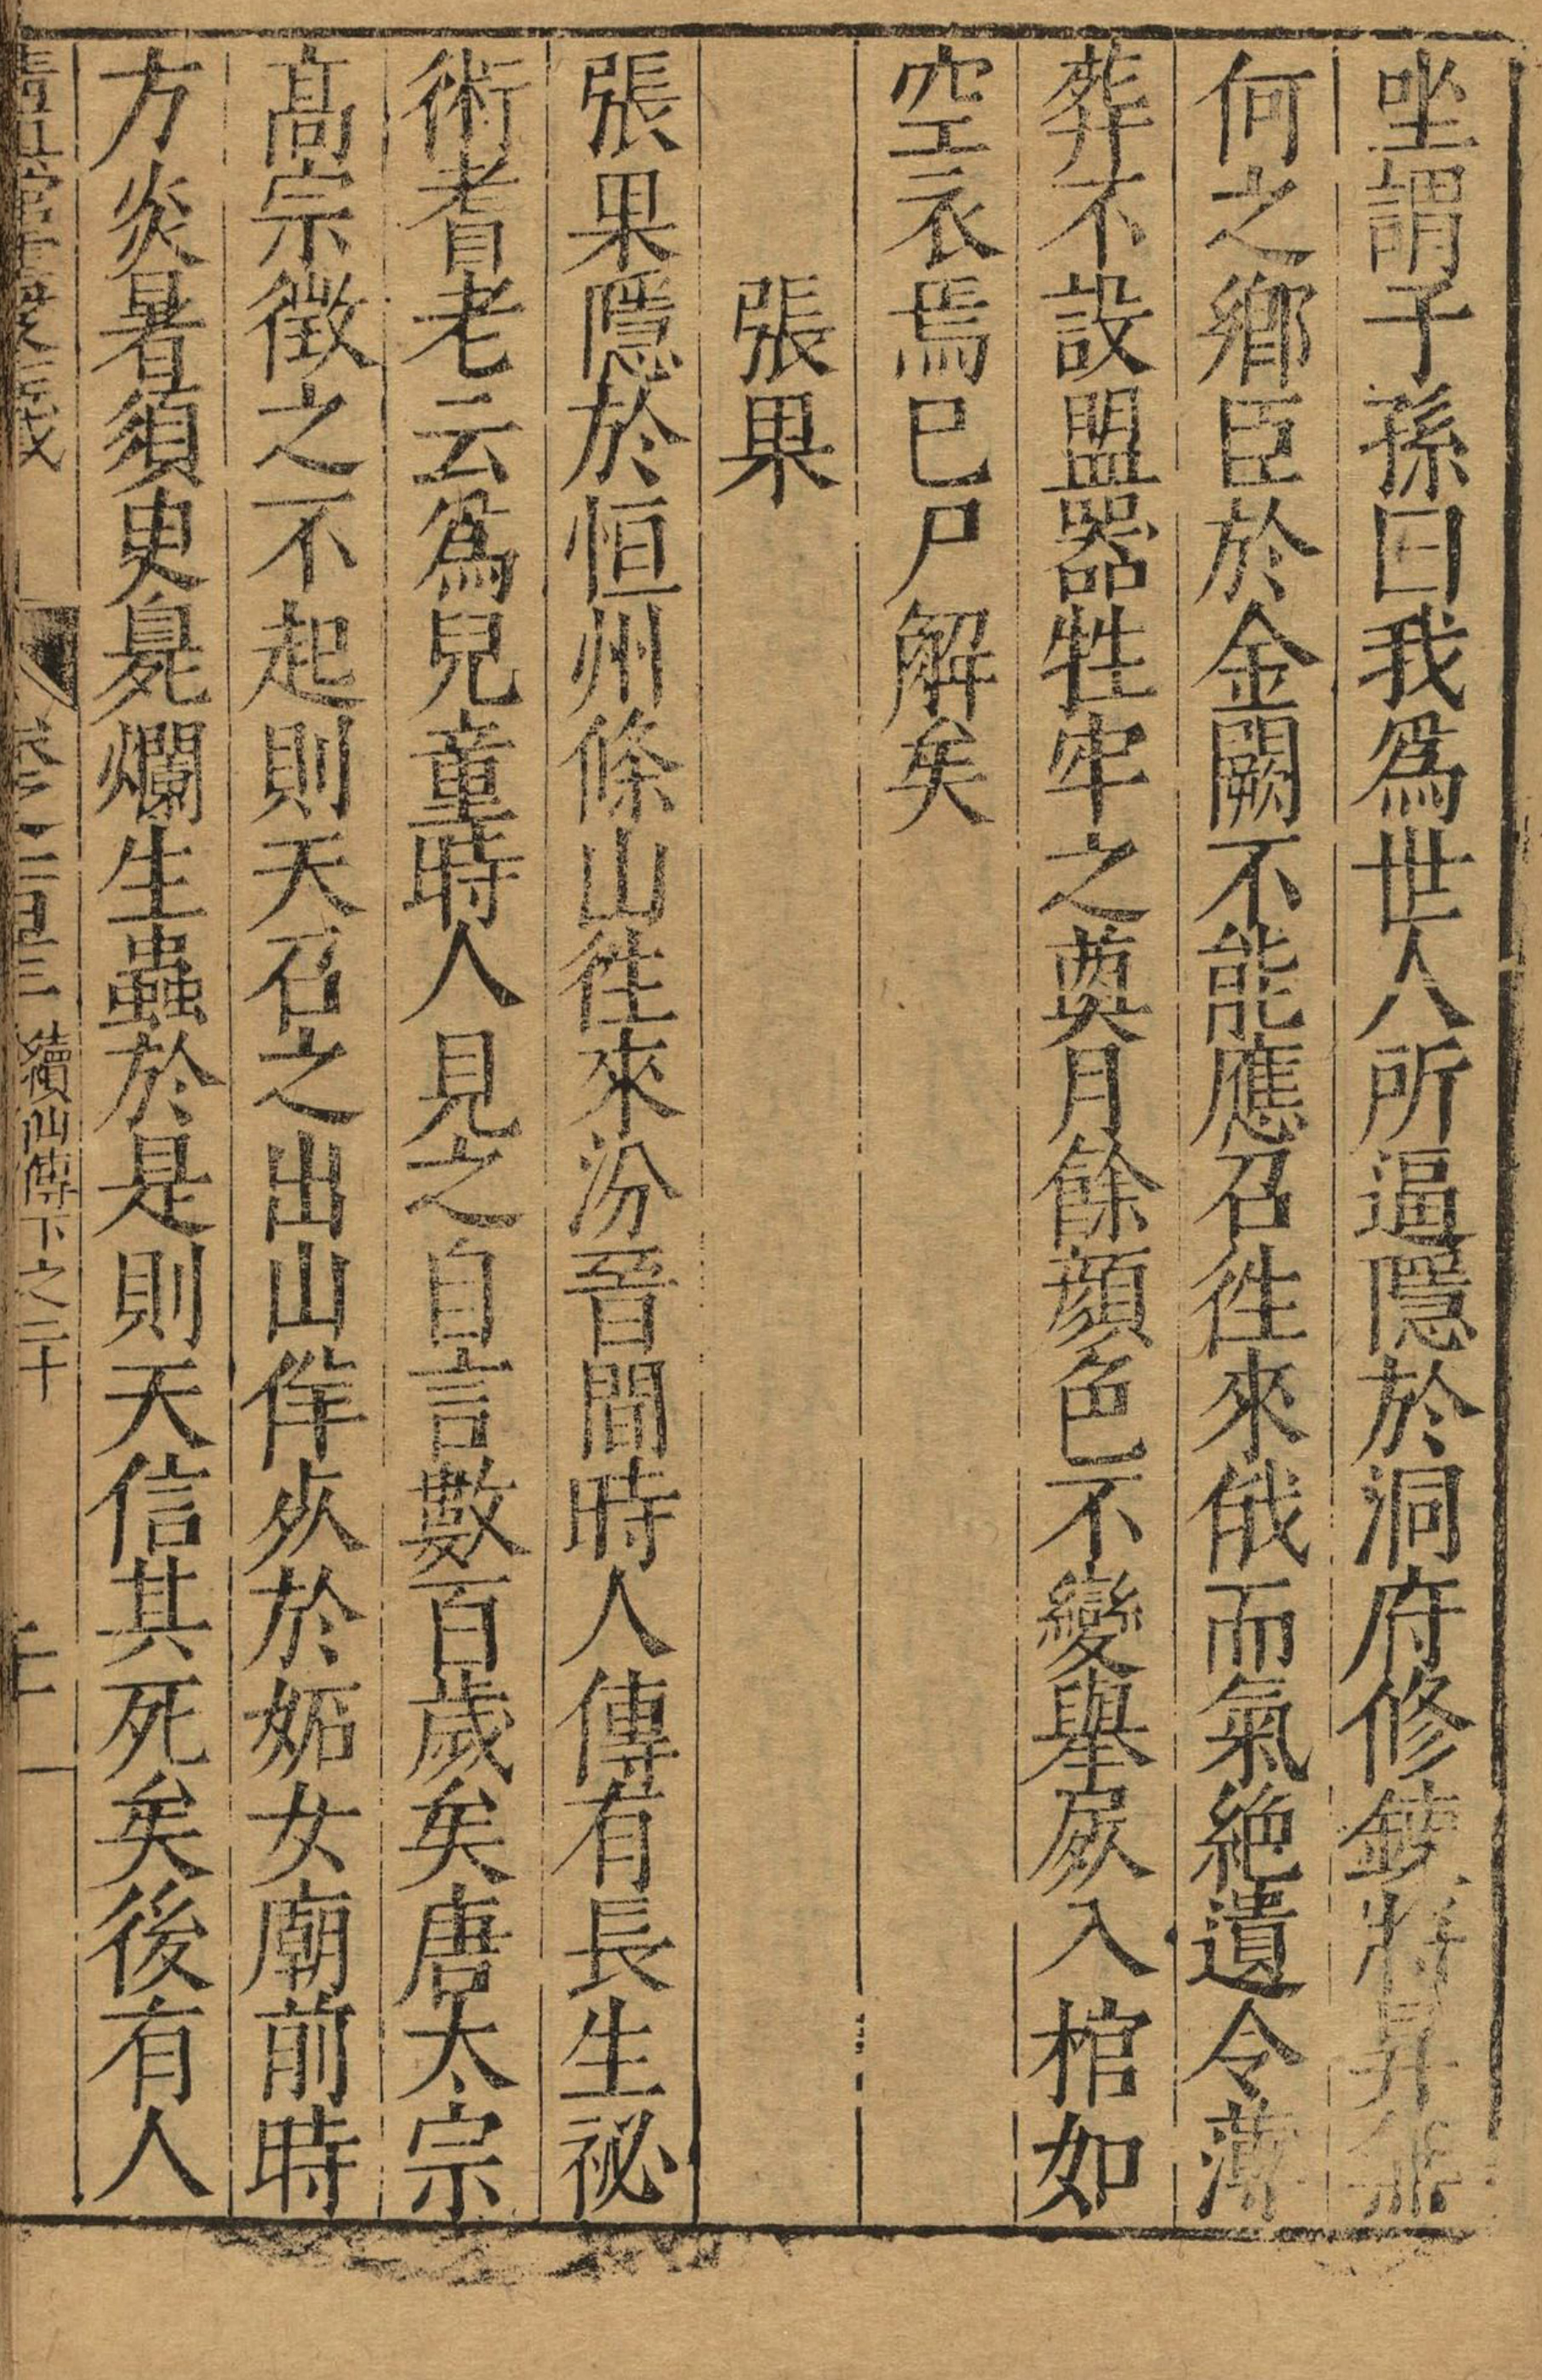 坐謂子孫曰我爲世人所逼隱於洞府修鍊將昇無
何之鄉臣於金闕不能應召徃來俄而氣絶遺令薄
葬不設盟器牲牢之奠月餘顔色不變舉屍入棺如
空衣焉已尸解矣
張果
張果隱於恒州條山徃來汾晉間時人傳有長生祕
術耆老云爲兒童時人見之自言數百歲矣唐太宗
高宗徵之不起則天召之出山佯死於妬女廟前時
方炎暑須臾臭爛生蟲於是則天信其死矣後有人
續仙傳下之二十